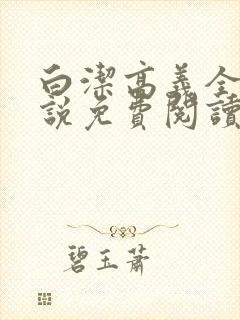 白潔高義全
說免費閱讀
碧玉蕭